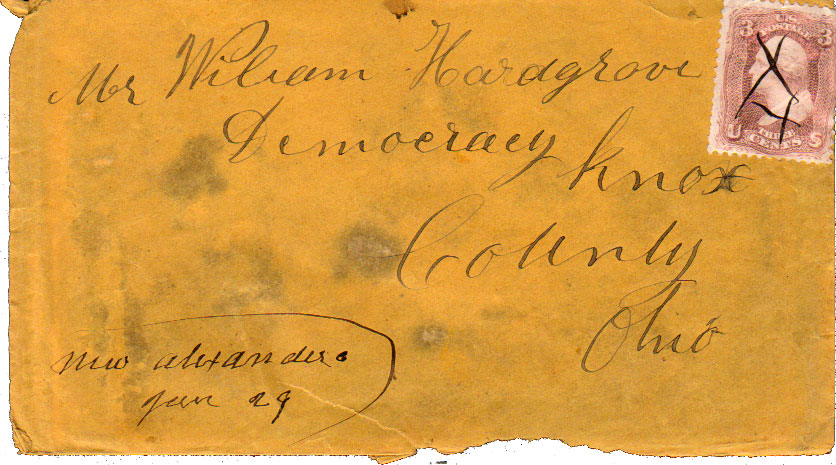 Mr Wiliam Hardgrove
Democracy Knox
County
Ohio
U.S.
POSTAGE
3 3
U S
THREE
CENTS
X
4
new alexander
Jan 29